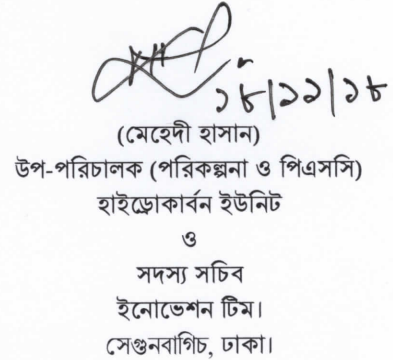 ১৮/১১/১৮
(মেহেদী হাসান)
উপ-পরিচালক (পরিকল্পনা ও পিএসসি)
হাইড্রোকার্বন ইউনিট
ও
সদস্য সচিব
ইনোভেশন টিম।
সেগুনবাগিচ, ঢাকা।